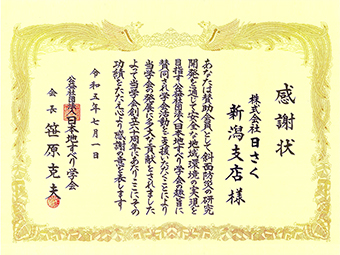 感謝状
株式会社日さく
新潟支店様
あなたは賛助会員として斜面防災の研究
開発を通じて安全な地域環境の実現を
目指す公益社団法人日本地すべり学会の趣旨に
賛同され学会活動をご支援いただくことにより
当学会の発展に多大な貢献をされました
よって当学会創立六十周年にあたりここにその
功績をたたえ心より感謝の意を表します
令和五年七月一日
公益社団法人日本地すべり学会
会長 笹原克夫